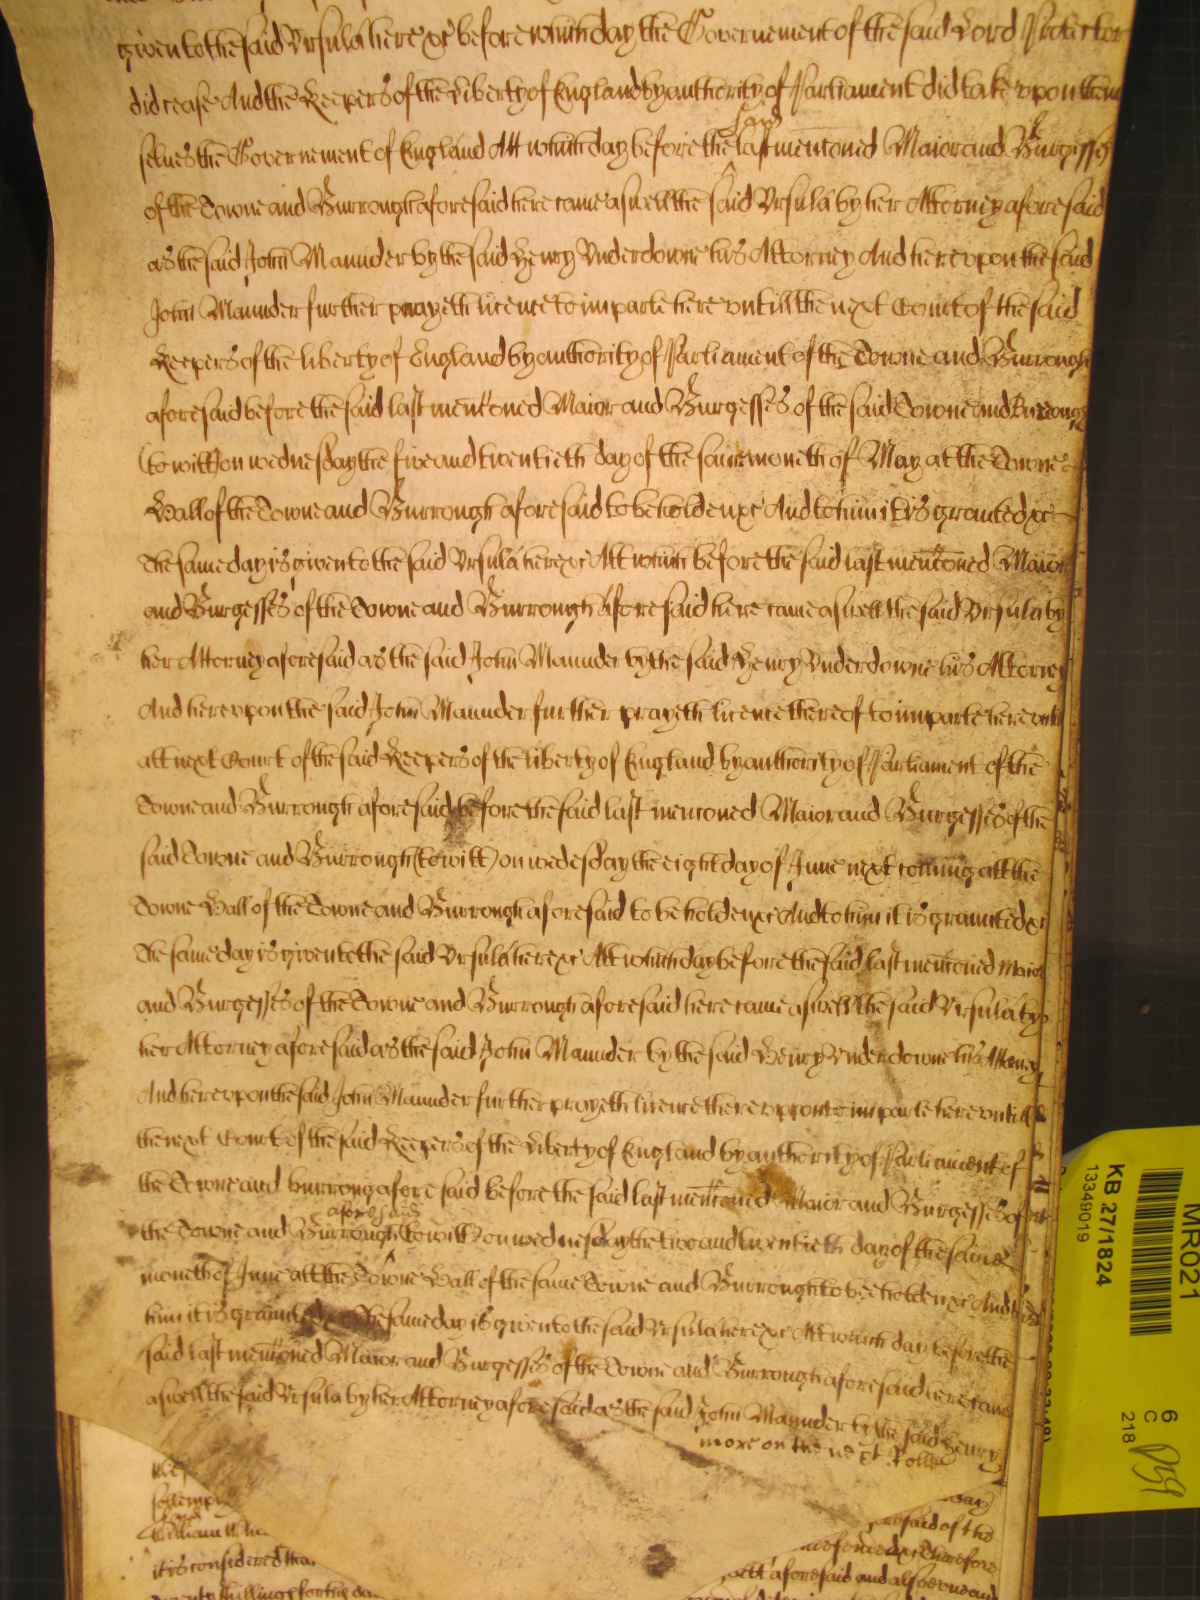 given to the said Ursula here &c before which day the Governement of the said Lord Protector
did cease And the Keepers of the Liberty of England by authority of Parliament did take upon them
selves the Governement of England Att which day before the said last menconed Maior and Burgesses
of the Towne and Burrough aforesaid here came aswell the said Ursula by her Attorney aforesaid
as the said John Maunder by the said Henry Underdowne his Attorney And hereupon the said
John Maunder further prayeth licence to imparle here untill the next Court of the said
Keepers of the liberty of England by authority of Parliament of the Towne and Burrough
aforesaid before the said last menconed Maior and Burgesses of the said Towne and Burrough
(to witt) on wednesday the five and twentieth day of the same moneth of May at the Towne
Hall of the Towne and Burrough aforesaid to be holden &c And to him it is granted &c
The same day is given to the said Ursula here &c Att which before the said last menconed Maior
and Burgesses of the Towne and Burrough aforesaid here came aswell the said Ursula by
her Attorney aforesaid as the said John Maunder by the said Henry Underdowne his Attorney
And hereupon the said John Maunder further prayeth licence thereof to imparle here untill
att next Court of the said Keepers of the liberty of England by authority of Parliament of the
Towne and Burrough aforesaid before the said last menconed Maior and Burgesses of the
said Towne and Burrough (to witt) on wedesday the eight day of June next coming att the
Towne Hall of the Towne and Burrough aforesaid to be holden &c And to him it is graunted &c
The same day is given to the said Ursula here &c Att which day before the said last menconed Maior
and Burgesses of the Towne and Burrough aforesaid here came aswell the said Ursula by
her Attorney aforesaid as the said John Maunder by the said Henry Underdowne his Attorney
And hereupon the said John Maunder further prayeth licence thereupon to imparle here untill
the next Court of the said Keepers of the Liberty of England by authority of Parliament of
the Towne and burroug afore said before the said last menconed Maior and Burgesses of
the Towne and Burrough aforesaid (to witt) on wednesday the two and twentieth day of the same
moneth of June att the Towne Hall of the same Towne and Burrough to bee holden &c And to
him it is graunted &c The same day is given to the said Ursula here &c Att which day before the
said last menconed Maior and Burgesses of the Towne and Burrough aforesaid here came
aswell the said Ursula by her Attorney aforesaid as the said John Maunder by the said Henry
more on the next Rolle
William
aforesaid of the
it is considered that
Therefore
twenty shillings for the
aforesaid and also
MR021
KB 27/1824
13349019
6
C
218